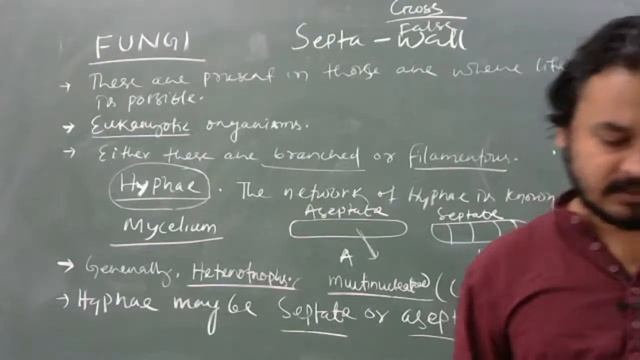 Cross
FUNGI Septa - Wall
False
→ These are present in those are where life
is possible.
→ Eukaryotic organisms.
→ Either these are branched or filamentous.
Hyphae . The network of Hyphae is known
Aseptate Septate
Mycelium
A
→ Generally, Heterotrophs. multinucleated (
→ Hyphae may be Septate or asept